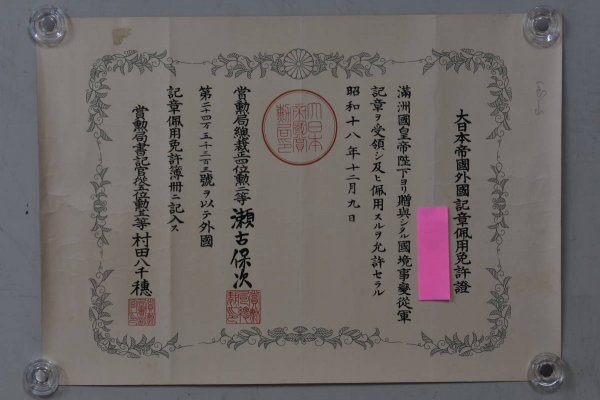 大日本帝國外國記章佩用免許證
滿洲國皇帝陛下ヨリ贈與シタル國境事變從軍
記章ヲ受領シ及ヒ佩用スルヲ允許セラル
昭和十八年十二月九日
大日本
帝國賞
勳局印
賞勲局總裁正四位勲二等 瀬古保次
第二十四万五千二百三號ヲ以テ外國
記章佩用免許簿册ニ記入ス
賞勲局書記官從五位勲五等 村田八千穗